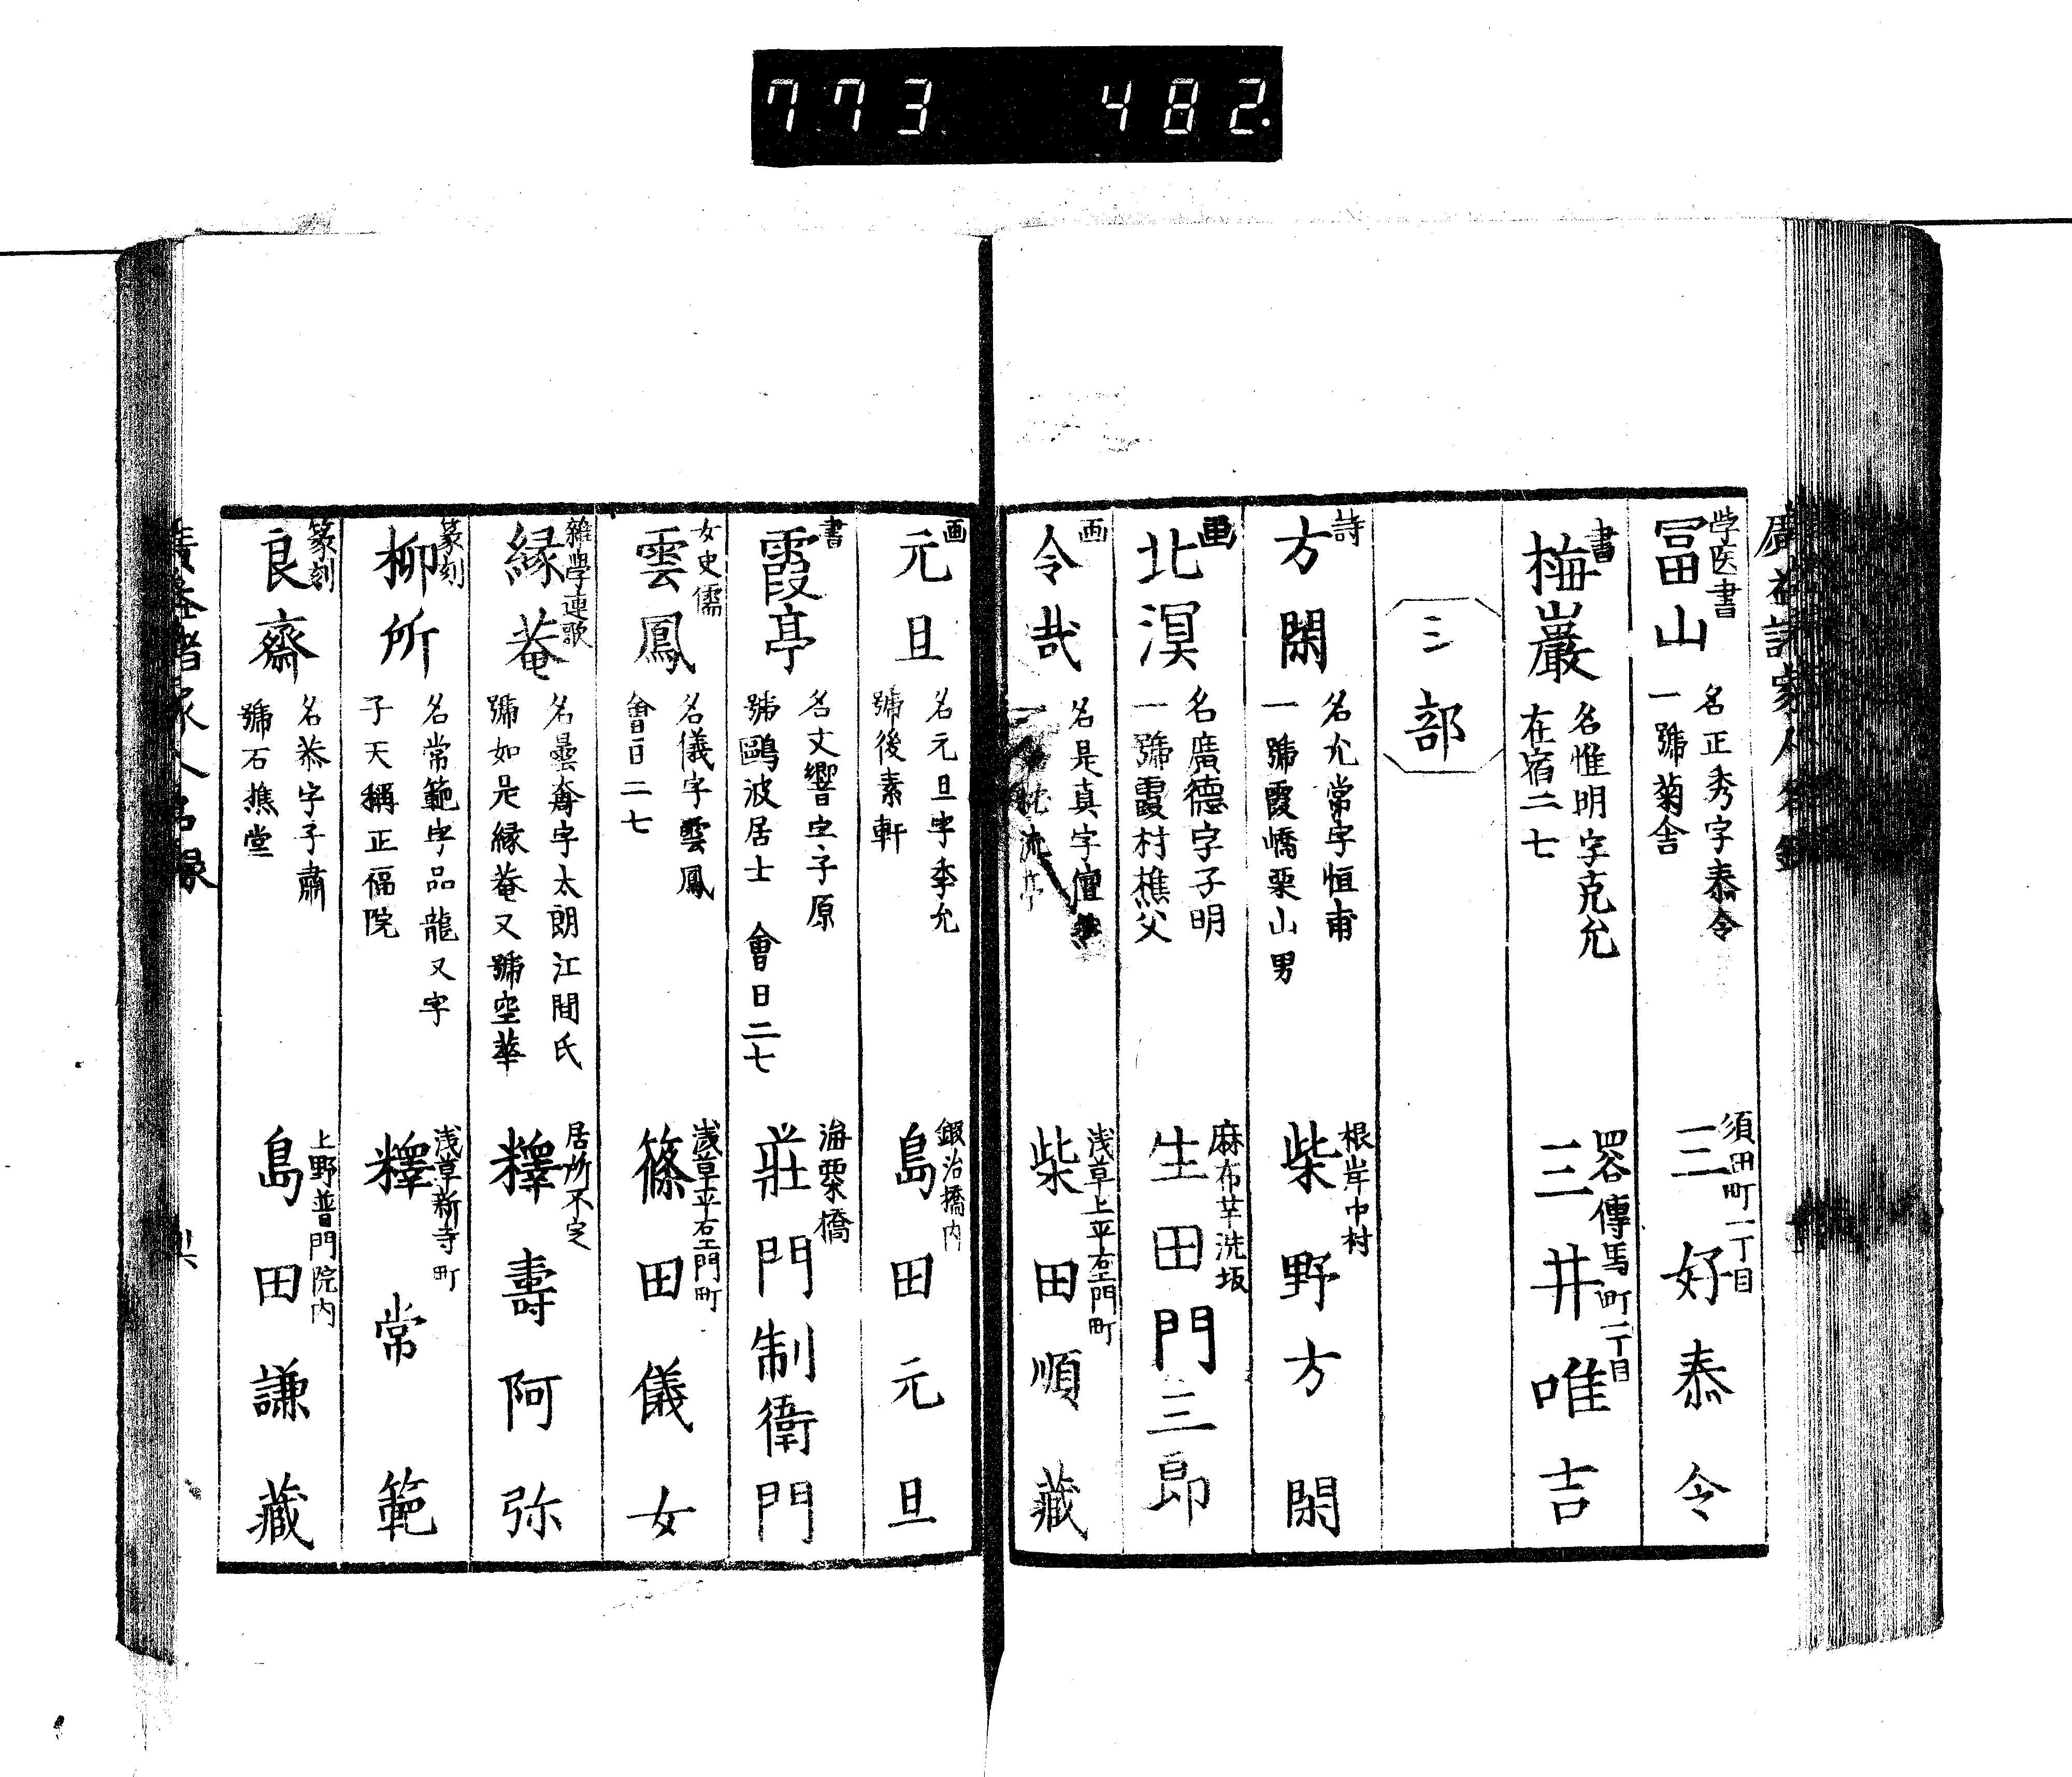 773 482.
廣益諸家人名録
学医書
冨山
名正秀字泰令
一號菊舎
須田町一丁目
三好泰令
書
梅巖
名惟明字克允
在宿二七
傳馬町一丁目
三井唯吉
ミシ部
詩
方閑
名允常字恒甫
一號霞嶠栗山男
根岸中村
柴野方閑
画
北溟
名廣德字子明
一號霞村樵父
麻布芋洗坂
生田門三郎
画
令哉
名是真字儃
枕流亭
浅草上平右エ門町
柴田順藏
画
元旦
名元旦字季允
號後素軒
鍜冶橋内
島田元旦
書
霞亭
名文響字子原
號鷗波居士 會日二七
海棗橋
莊門制衛門
女史儒
雲鳳
名儀字雲鳳
會日二七
浅草平右エ門町
篠田儀女
雑學連歌
縁菴
名曇奝字太朗江間氏
號如是縁菴又號空華
居所不定
釋壽阿弥
篆刻
柳所
名常範字品龍又字
子天稱正福院
浅草新寺町
釋常範
篆刻
良齋
名恭字子肅
號石樵堂
上野普門院内
島田謙藏
廣益諸家人名録